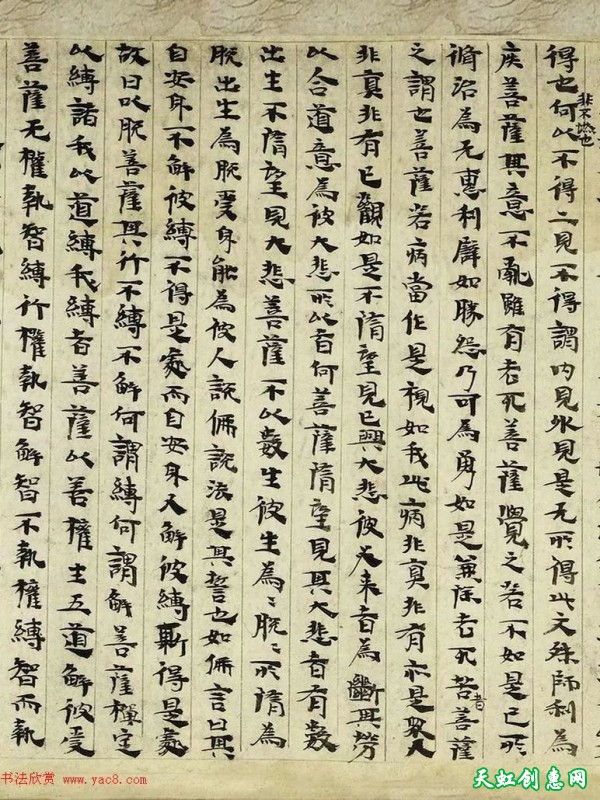 得也何以不得二見不得謂内見外見是无所得此文殊師利為
非不然也
疾菩薩其意不亂雖有老死菩薩覺之若不如是已所
脩治為无惠利譬如勝怨乃可為勇如是兼除老死苦者菩薩
之謂也菩薩若病當作是視如我此病非真非有亦是衆人
非真非有已觀如是不隋望見已興大悲彼来者為斷其勞
以合道意為彼大悲所以者何菩薩隋望見其大悲者有數
出生不隋望見大悲菩薩不以數生彼生為〻脫〻所隋為
脫出生為脫受身能為彼人說佛說法是其誓也如佛言曰其
自安身不解彼縛不得是處而自安身又解彼縛斯得是處
故曰以脫菩薩其行不縛不解何謂縛何謂解菩薩禪定
以縛諸我以道縛我縛者菩薩以善權生五道解彼受
菩薩无權執智縛行權執智解智不執權縛智而執
书法欣赏 www.yac8.com
天虹创惠网